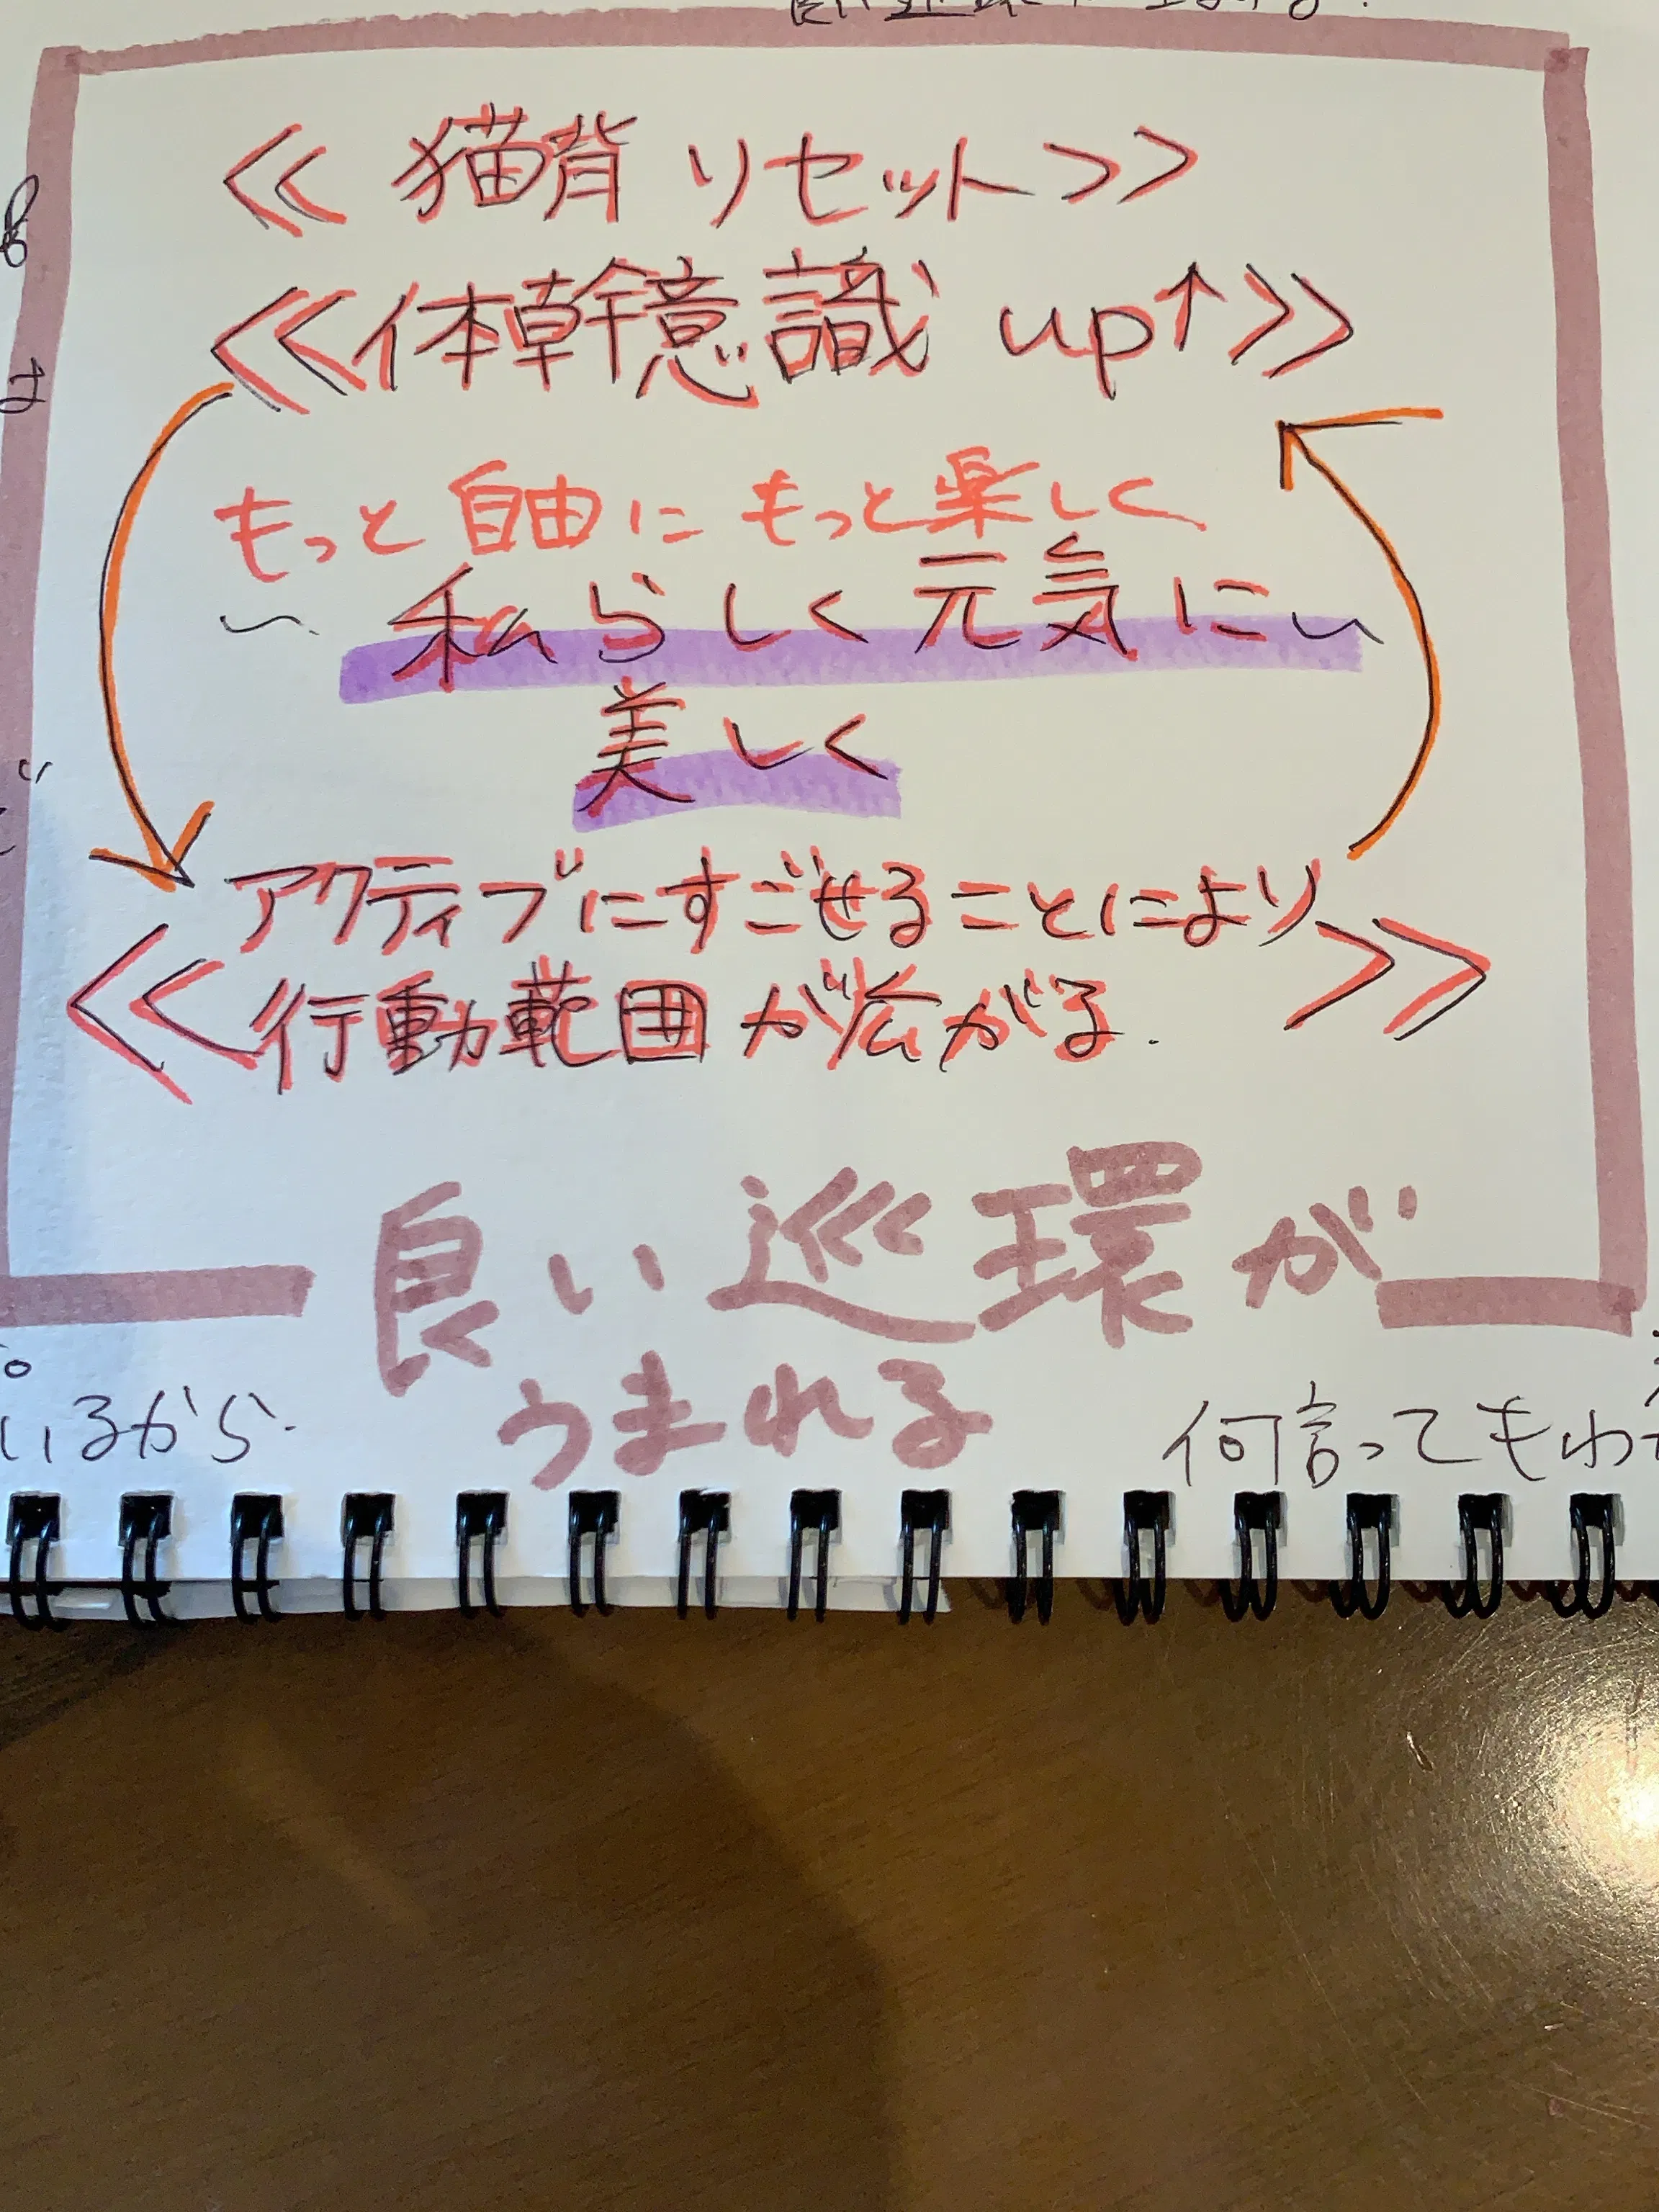 << 猫背 リセット >>
<< 体幹意識 up↑ >>
もっと 自由に もっと楽しく
〃 私らしく 元気に 〃
美しく
アクティブにすごせることにより
<< 行動範囲が広がる. >>
良い巡環が
うまれる
いるから.
何言ってもわ